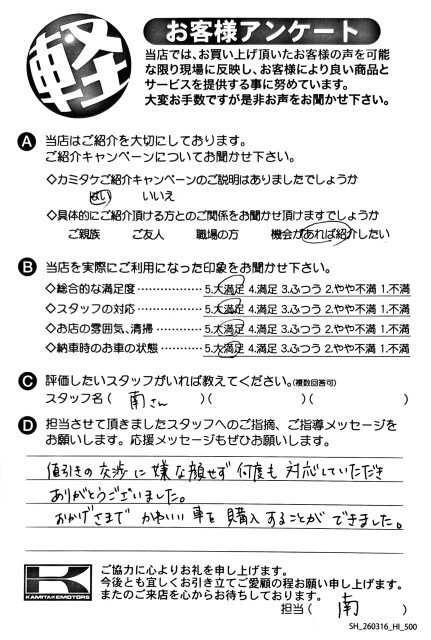 軽
お客様アンケート
当店では、お買い上げ頂いたお客様の声を可能
な限り現場に反映し、お客様により良い商品と
サービスを提供する事に努めています。
大変お手数ですが是非お声をお聞かせ下さい。
A 当店はご紹介を大切にしております。
ご紹介キャンペーンについてお聞かせ下さい。
◇カミタケご紹介キャンペーンのご説明はありましたでしょうか
はい いいえ
◇具体的にご紹介頂ける方とのご関係をお聞かせ頂けますでしょうか
ご親族 ご友人 職場の方 機会があれば紹介したい
B 当店を実際にご利用になった印象をお聞かせ下さい。
◇総合的な満足度……………… 5.大満足 4.満足 3.ふつう 2.やや不満 1.不満
◇スタッフの対応……………… 5.大満足 4.満足 3.ふつう 2.やや不満 1.不満
◇お店の雰囲気、清掃………… 5.大満足 4.満足 3.ふつう 2.やや不満 1.不満
◇納車時のお車の状態………… 5.大満足 4.満足 3.ふつう 2.やや不満 1.不満
C 評価したいスタッフがいれば教えてください。(複数回答可)
スタッフ名( 南さん )( )( )
D 担当させて頂きましたスタッフへのご指摘、ご指導メッセージを
お願いします。応援メッセージもぜひお願いします。
値引きの交渉に嫌な顔せず何度も対応していただき
ありがとうございました。
おかげさまでかわいい車を購入することができました。
K
KAMITAKEMOTORS
ご協力に心よりお礼を申し上げます。
今後とも宜しくお引き立てご愛顧の程お願い申し上げます。
またのご来店を心からお待ちしております。
担当( 南 )
SH_260316_HI_500